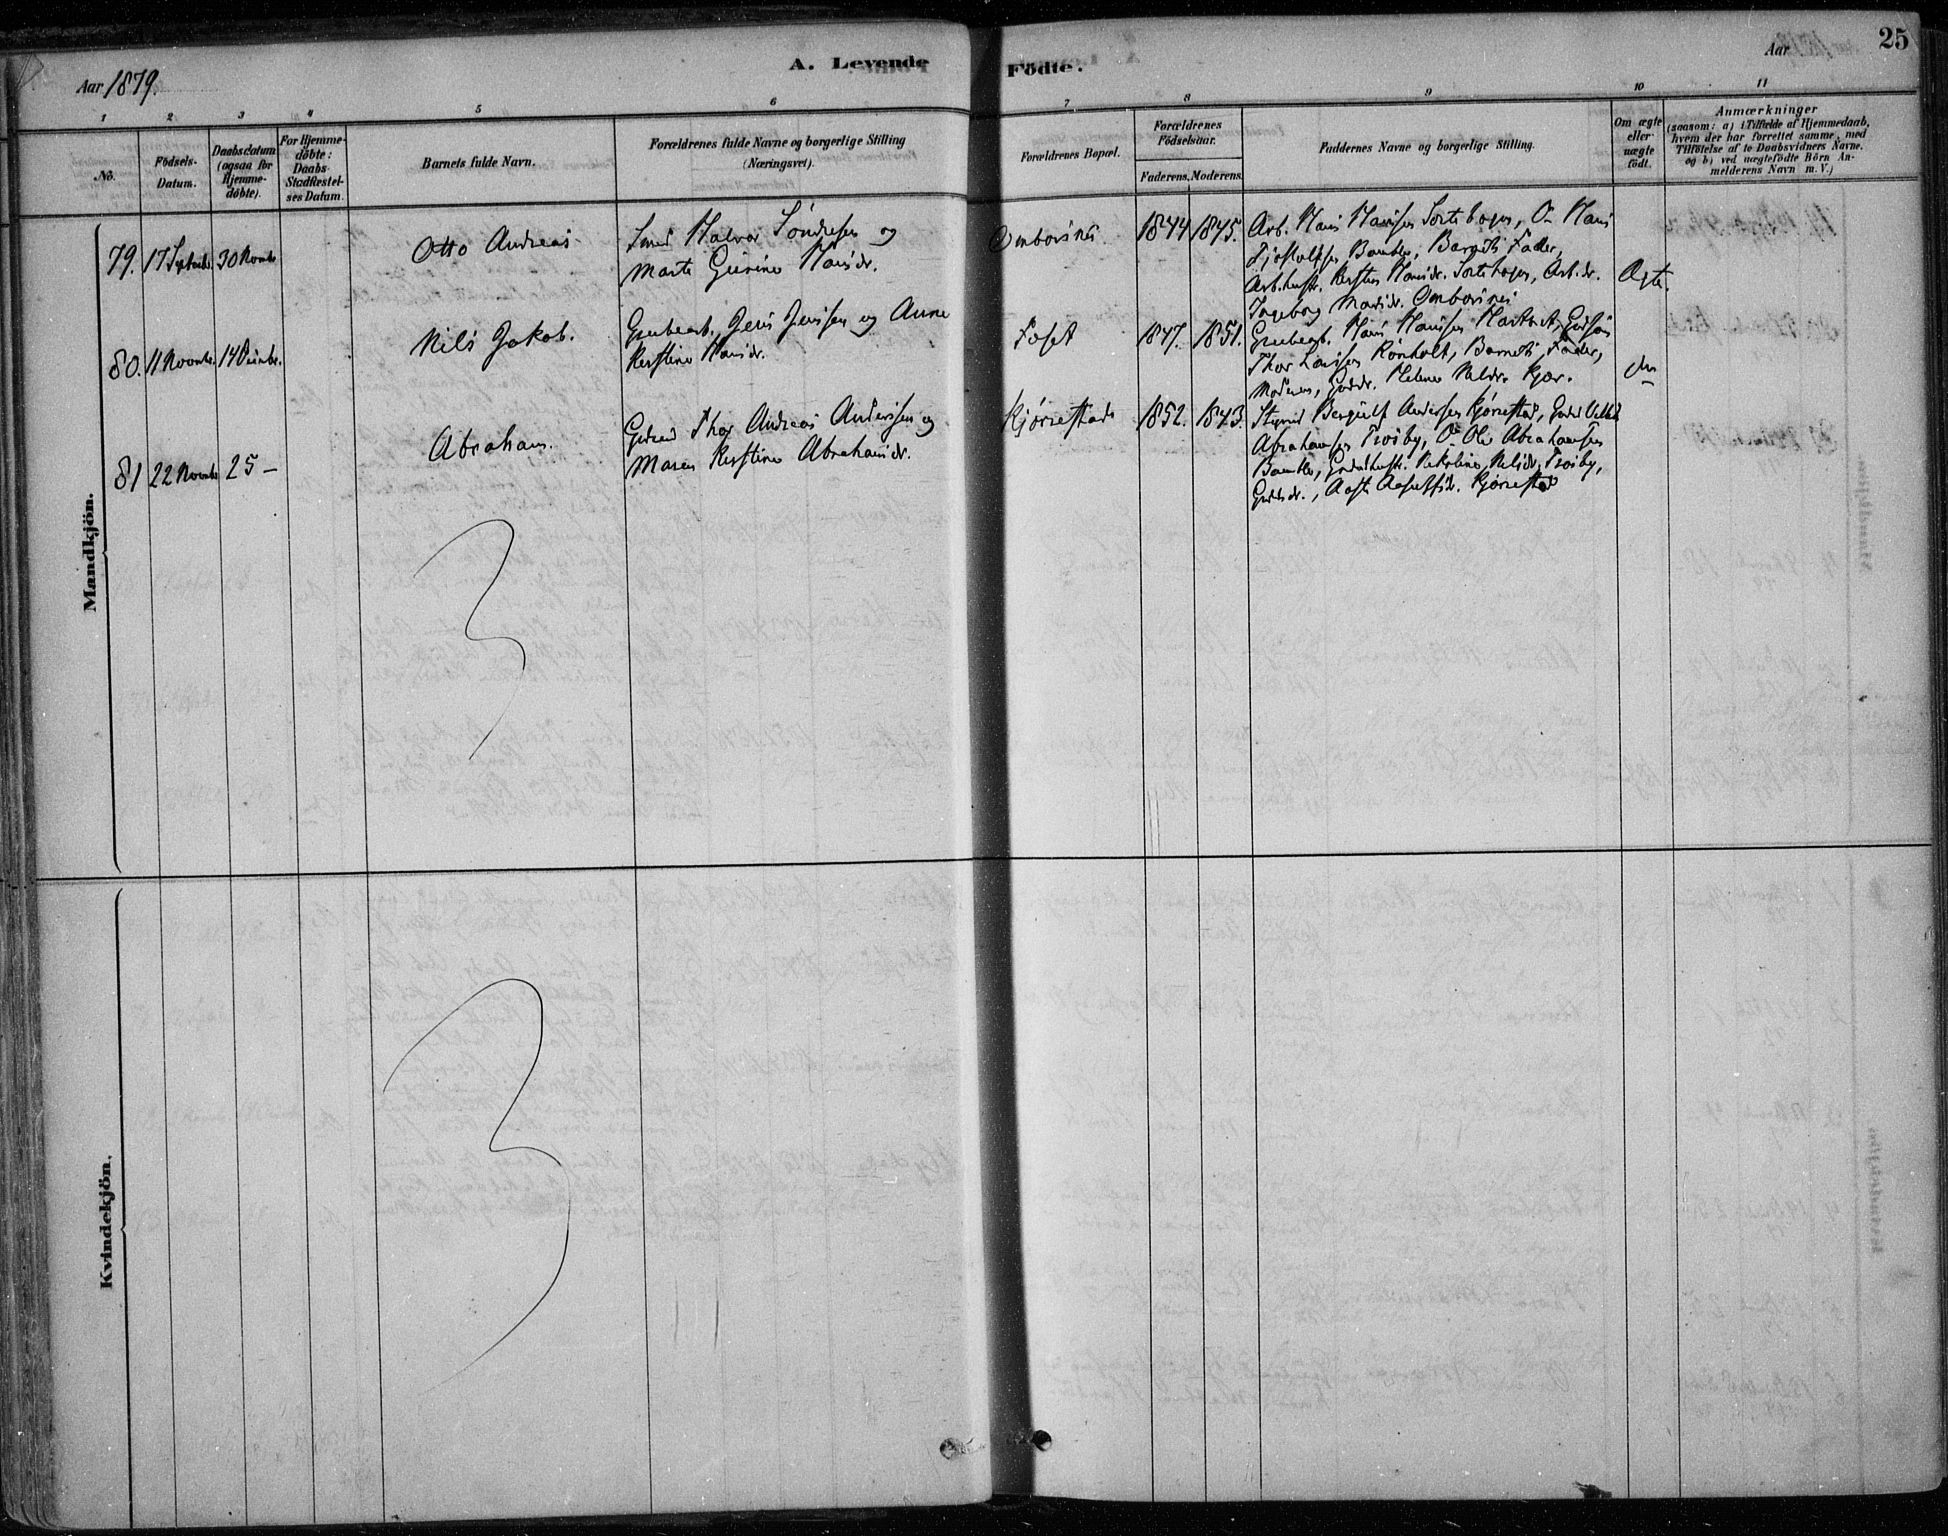 25
A. Levende Födte.
Aar 1879.
Aar
1 2 3 4 5 6 7 8 9 10 11
No.
Födsels-Datum.
Daabsdatum (ogsaa for Hjemme-döbte).
For Hjemme-döbte: Daabs-Stadfæstel-ses Datum.
Barnets fulde Navn.
Forældrenes fulde Navne og borgerlige Stilling (Næringsvei).
Forældrenes Bopæl.
Forældrenes Födselsaar.
Faderens. Moderens.
Faddernes Navne og borgerlige Stilling.
Om ægte eller uægte födt.
Anmærkninger
(saasom: a) i Tilfælde af Hjemmedaab,
hvem der har forrettet samme, med
Tilföielse af to Daabsvidners Navne.
og b) ved uægtefödte Börn An-
melderens Navn m. V.)
Mandkjön.
79. 17 Septembr. 30 Novmbr. Otto Andreas Smed Halvor Søndresen og
Marte Gurine Hansdr.
Omborsnes 1844 1845. Arb. Hans Hansen Sortebogen, O Hans
Bamble, Barnets Fader,
Arb.hustr. Kersten Hansdr. Sortebogen, Arb.dr.
Ingeborg Omborsnes
Ægte.
80. 11 Novmbr. 14 Decmbr. Nils Jakob. Grubearb. Jens Jensen og Anne
Kerstine Hansdr.
Foset 1847. 1851. Grubearb. Hans Hansen
Thor Larsen Rønholt, Barnets Fader,
Moderen, Helene Nilsdr. Kjær.
do
81 22 Novmbr 25 – Abraham. Thor Andreas Andersen og
Maren Kerstine Abrahamsdr.
Kjørrestad 1852. 1843. Andersen Kjørrestad,
Abrahamsen Trosby, O Ole Abrahamsen
Bamble, Nilsdr. Trosby,
Kjørrestad
Kvindekjön.